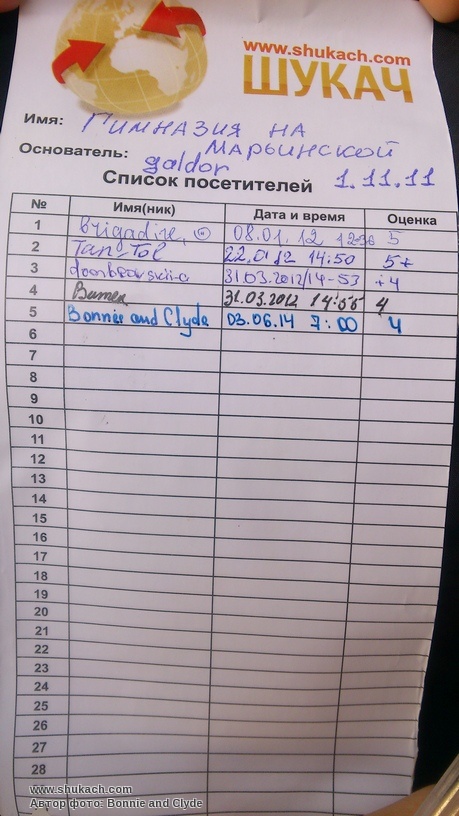 www.shukach.com
ШУКАЧ
Имя: ГИМНАЗИЯ НА
МАРЬИНСКОЙ
Основатель: galdor 1.11.11
Список посетителей
№ Имя(ник) Дата и время Оценка
1 Brigadire, 08.01.12 12-36 5
2 Tan_Tol 22.01.12 14:50 5+
3 31.03.2012/14-53 +4
4 31.03.2012 14:55 4
5 Bonnie and Clyde 03.06.14 7:00 4
6
7
8
9
10
11
12
13
14
15
16
17
18
19
20
21
22
23
24
25
26
27
28
www.shukach.com
Автор фото: Bonnie and Clyde